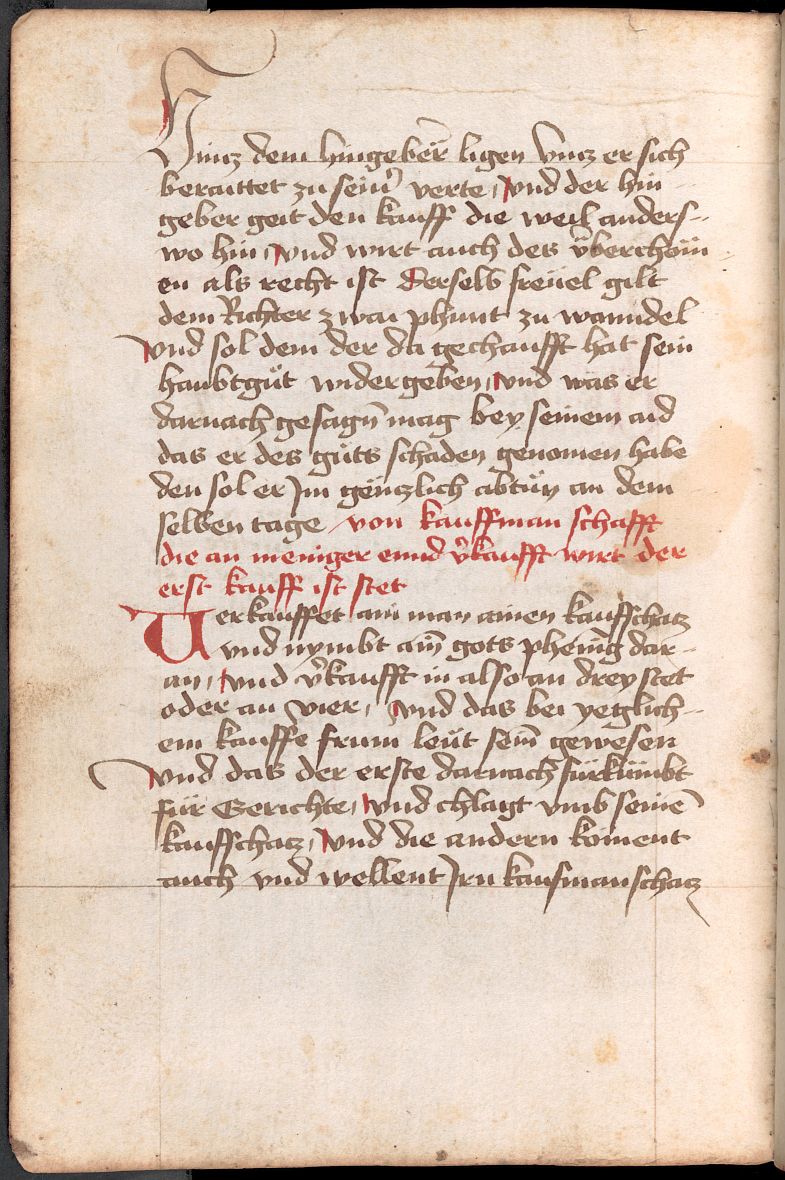 Hincz dem hingeber̄ ligen vncz er sich
beraittet zu sein̄ verte / vnd der hin-
geber geit den kauff die weil anders-
wo hin / vnd wirt auch des vberchöm-
en als recht ist derselb freüel gilt
dem Richter zwai phunt zu wanndel
vnd sol dem der da gechaufft hat sein
haubtgůt widergeben / vnd was er
darnach gesagn̄ mag bey seinem aid
das er des gůts schaden genomen habe
den sol er Im genczlich abtůn an dem
selben tage von kauffman schafft
die an meniger ennd v̄kaufft wirt der
erst kauff ist stet
Verkauffet ain man ainen kauffschatz
vnd nymbt ain̄ gots phenīg dar-
an / vnd v̄kaufft in also an drey stet
oder an vier / vnd das bei yeglich-
em kauffe frum leüt sein̄ gewesen
vnd das der erste darnach fürkümbt
für Gerichte / vnd chlagt vmb seinē
kauffschacz / vnd die andern koment
auch vnd wellent Irn kaufmanschacz